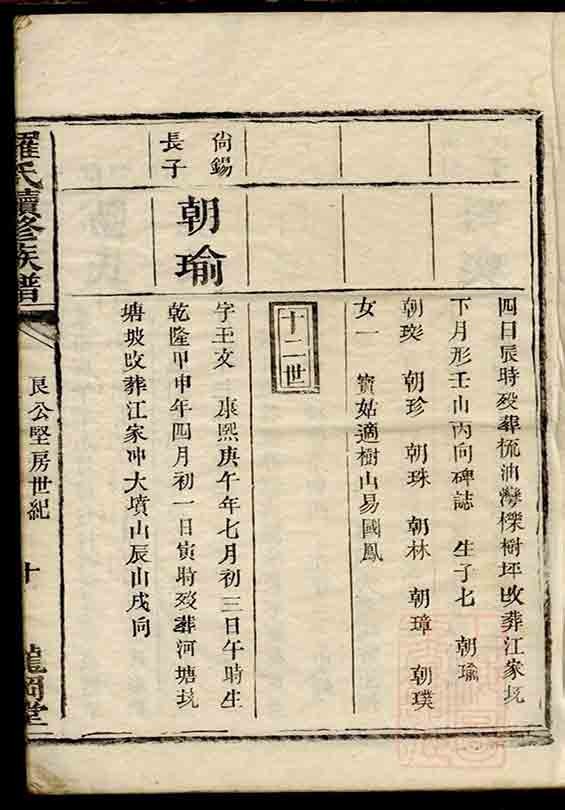 四日辰時歿葬梳油灣櫟樹坪改葬江家坑
下月形壬山丙向碑誌 生子七 朝瑜
朝琰 朝珍 朝珠 朝林 朝璋 朝璞
女一 寶姑適樹山易國鳳
十二世
尙錫
長子
朝瑜
字玉文 康熙庚午年七月初三日午時生
乾隆甲申年四月初一日寅時歿葬河塘坑
塘坡改葬江家冲大墳山辰山戌向
羅氏續修族譜
良公堅房世紀
十
龍岡堂